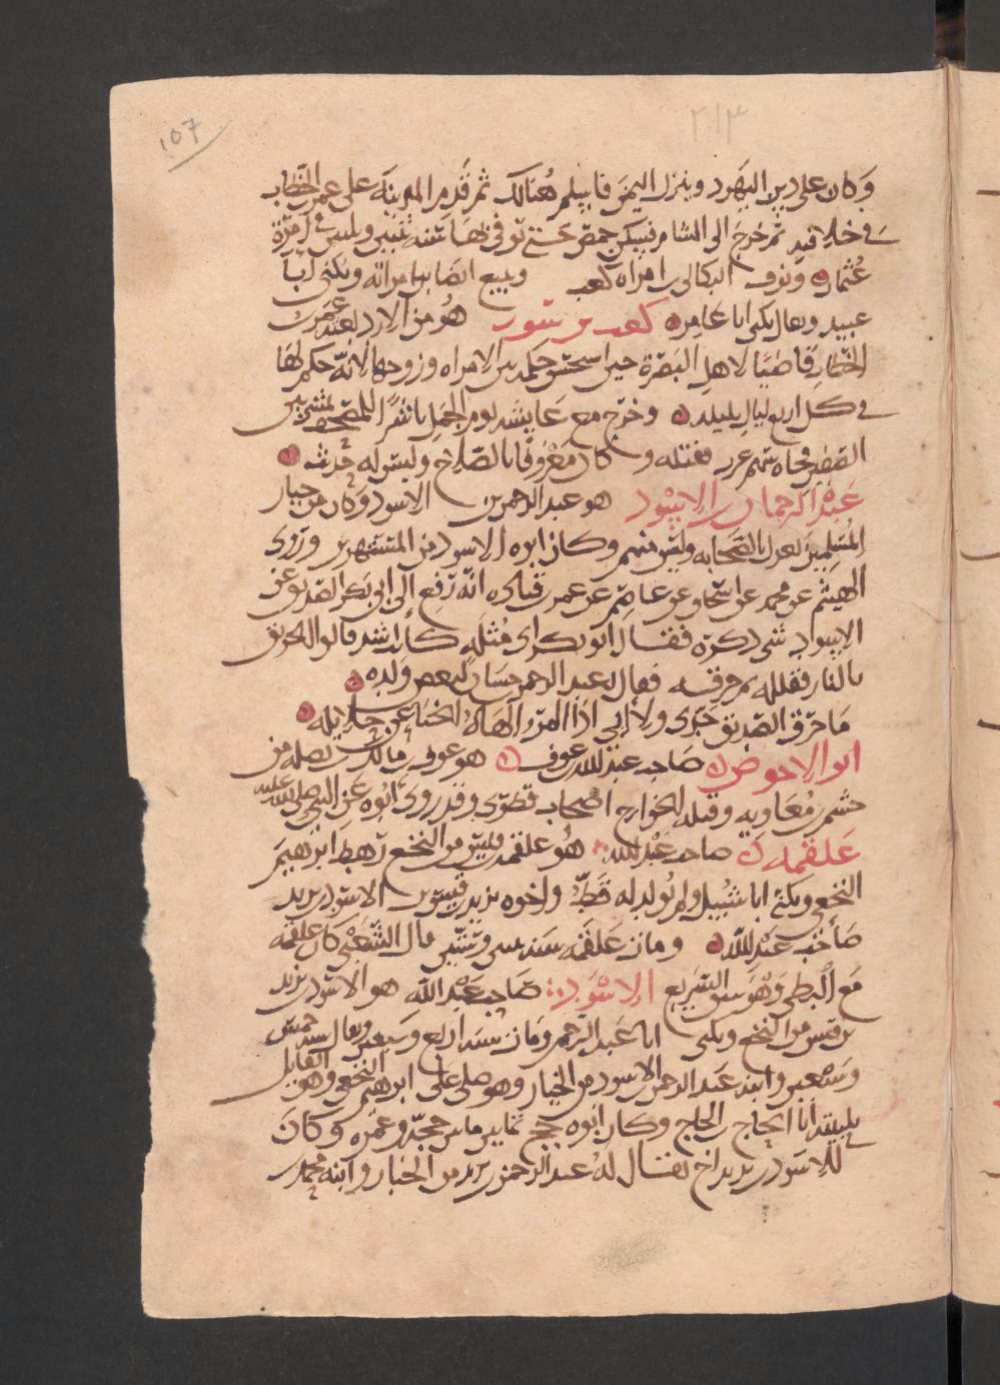 107
٢١٣
وكان على دين اليهود وينزل اليمن فاسلم هنالك ثم قدم المدينة على عمر بن الخطاب
في خلافته ثم خرج الى الشام فسكن حمص حتى توفي بها سنة ثنتين وثلثين في امرة
عثمان ونوف البكالي ابن امراة كعب وتبيع ايضا ابن امراته ويكنى ابا
عبيد ويقال يكنى ابا عامر كعب بن سور هو من الازد بعثه عمر بن
الخطاب قاضيا لاهل البصرة حين استحسن حكمه بين الامراه وزوجها لانه حكم لها
في كل اربع ليال بليلة وخرج مع عايشة يوم الجمل ناشرا المصحف يمشي بين
الصفين فجاه سهم غرب فقتله وكان معروفا بالصلاح وليس له حديث
عبد الرحمان بن الاسود هو عبد الرحمن بن الاسود وكان من خيار
المسلمين يعدل بالصحابه وليس منهم وكان ابوه الاسود من المستهزين وروى
الهيثم عن محمد عن اسحاق عن عاصم بن عمر بن قتاده انه رفع الى ابي بكر الصديق عن
الاسود شي ذكره فقال ابو بكر اي مثلة كانت اشد قالوا الحريق
بالنار فقلله ثم حرقه فقال عبد الرحمن بن حسان لبعض ولده
ما حرق الصديق جدي ولا ابي اذا المرؤ الهاه الخنا عن حلايله
ابو الاحوص صاحب عبد الله عوف هو عوف بن مالك بن نضلة من
جشم بن معاويه وقتله الخوارج اصحاب قطري وقد روى ابوه عن النبي صلى الله عليه
علقمه صاحب عبد الله هو علقمة بن قيس من النخع رهط ابراهيم
النخعي ويكنى ابا شبيل ولم يولد له قط واخوه يزيد بن قيس بن الاسود بن يزيد
صاحب عبد الله ومات علقمه سنة اثنين وستين قال الشعبي كان علقمه
مع البطي وهو يسبق السريع الاسود صاحب عبد الله هو الاسود بن يزيد
بن قيس من النخع ويكنى ابا عبد الرحمن ومات سنه اربع وسبعين ويقال سنه خمس
وسبعين وابنه عبد الرحمن بن الاسود من الخيار وهو صلى على ابرهيم النخعي وهو القايل
بلبيته انا الحاج بن الحاج وكان ابوه حج ثمانين ما بين حجة وعمره وكان
للاسود بن يزيد اخ يقال له عبد الرحمن بن يزيد من الخيار وابنه محمد بن